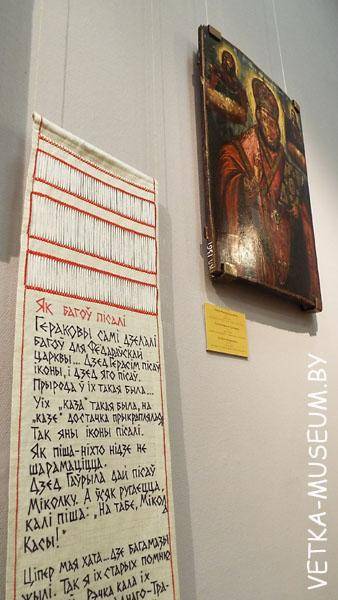 Як багоў пісалі
Гераковы самі дзелалі
багоў для Федараўскай
царквы... Дзед Герасім пісаў
іконы, і дзед яго пісаў.
Прырода ў іх такая была...
У іх „каза" такая была, на
„казе" достачка прыкраплялася.
Так яны іконы пісалі.
Як піша – ніхто нідзе не
шарамаціцца.
Дзед Гаўрыла дай пісаў
Міколку. А ўсяк ругаецца,
калі піша: „На табе, Мікола
Касы!"
Ціпер мая хата... дзе багамазы
жылі. Так я іх старых помню
Рачка кала іх
VETKA-MUSEUM.BY